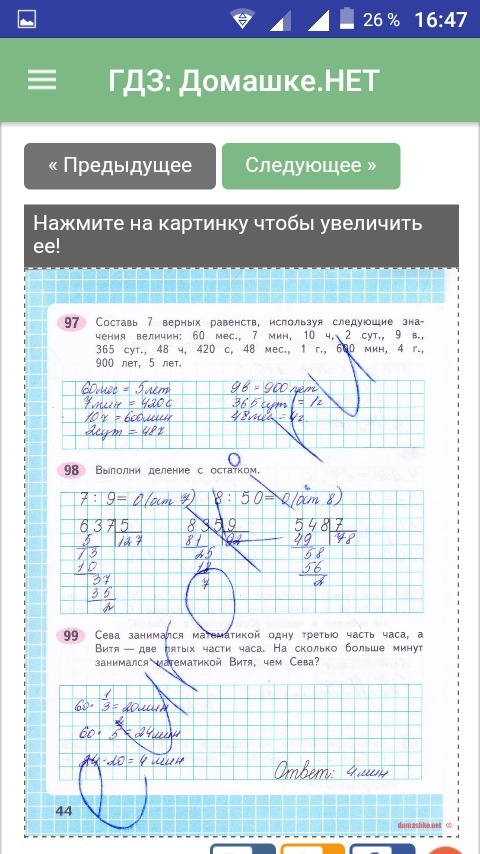 26 % 16:47
ГДЗ: Домашке.НЕТ
« Предыдущее Следующее »
Нажмите на картинку чтобы увеличить
ее!
97 Составь 7 верных равенств, используя следующие зна-
чения величин: 60 мес., 7 мин, 10 ч, 2 сут., 9 в.,
365 сут., 48 ч, 420 с, 48 мес., 1 г., 600 мин, 4 г.,
900 лет, 5 лет.
60мес = 5лет 9в = 900лет
7мин = 420с 365сут = 1г
10ч = 600мин 48мес = 4г
2сут = 48ч
98 Выполни деление с остатком.
7 : 9 = 0(ост 7) 8 : 50 = 0(ост 8)
637 5 835 9 548 7
5 127 81 92 49 78
13 25 58
10 18 56
37 7 2
35
2
99 Сева занимался математикой одну третью часть часа, а
Витя — две пятых части часа. На сколько больше минут
занимался математикой Витя, чем Сева?
60 · 1/3 = 20мин
60 · 5 = 24мин
24-20 = 4 мин
Ответ: 4мин
44
domashke.net ©